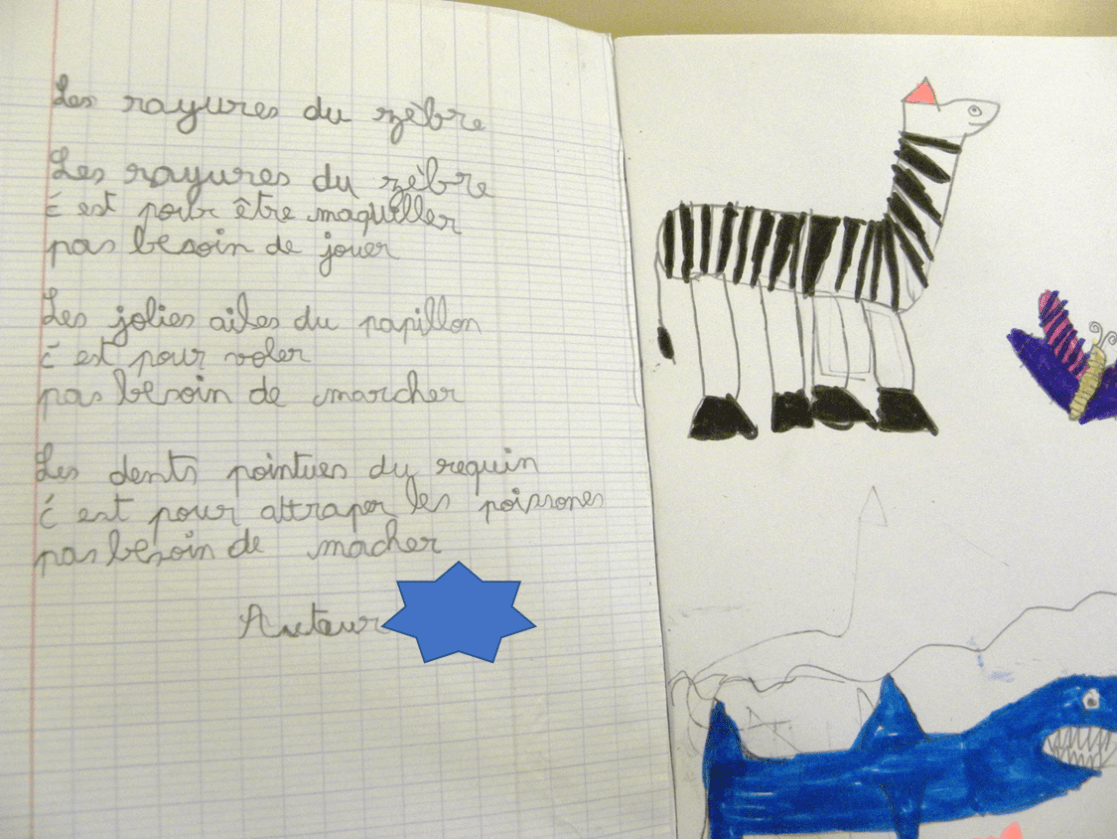 Les rayures du zèbre
Les rayures du zèbre
c est pour être maquiller
pas besoin de jouer
Les jolies ailes du papillon
c est pour voler
pas besoin de marcher
Les dents pointues du requin
c est pour attraper les poissones
pas besoin de macher
Auteur